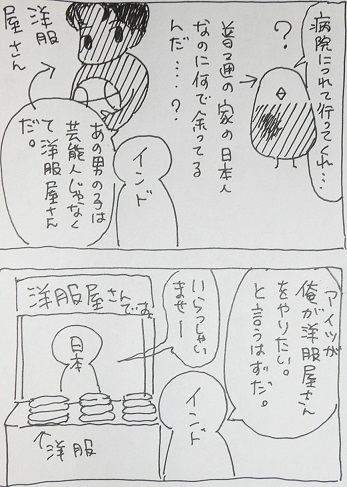 病院につれて行ってくれ…
？
普通の家の日本人
なのに何で余ってる
んだ……？
洋服
屋さん
あの男の子は
芸能人じゃなく
て洋服屋さん
だ。
インド
アイツが
俺が洋服屋さん
をやりたい。
と言うはずだ。
インド
いらっしゃい
ませー
洋服屋さんです
日本
洋服